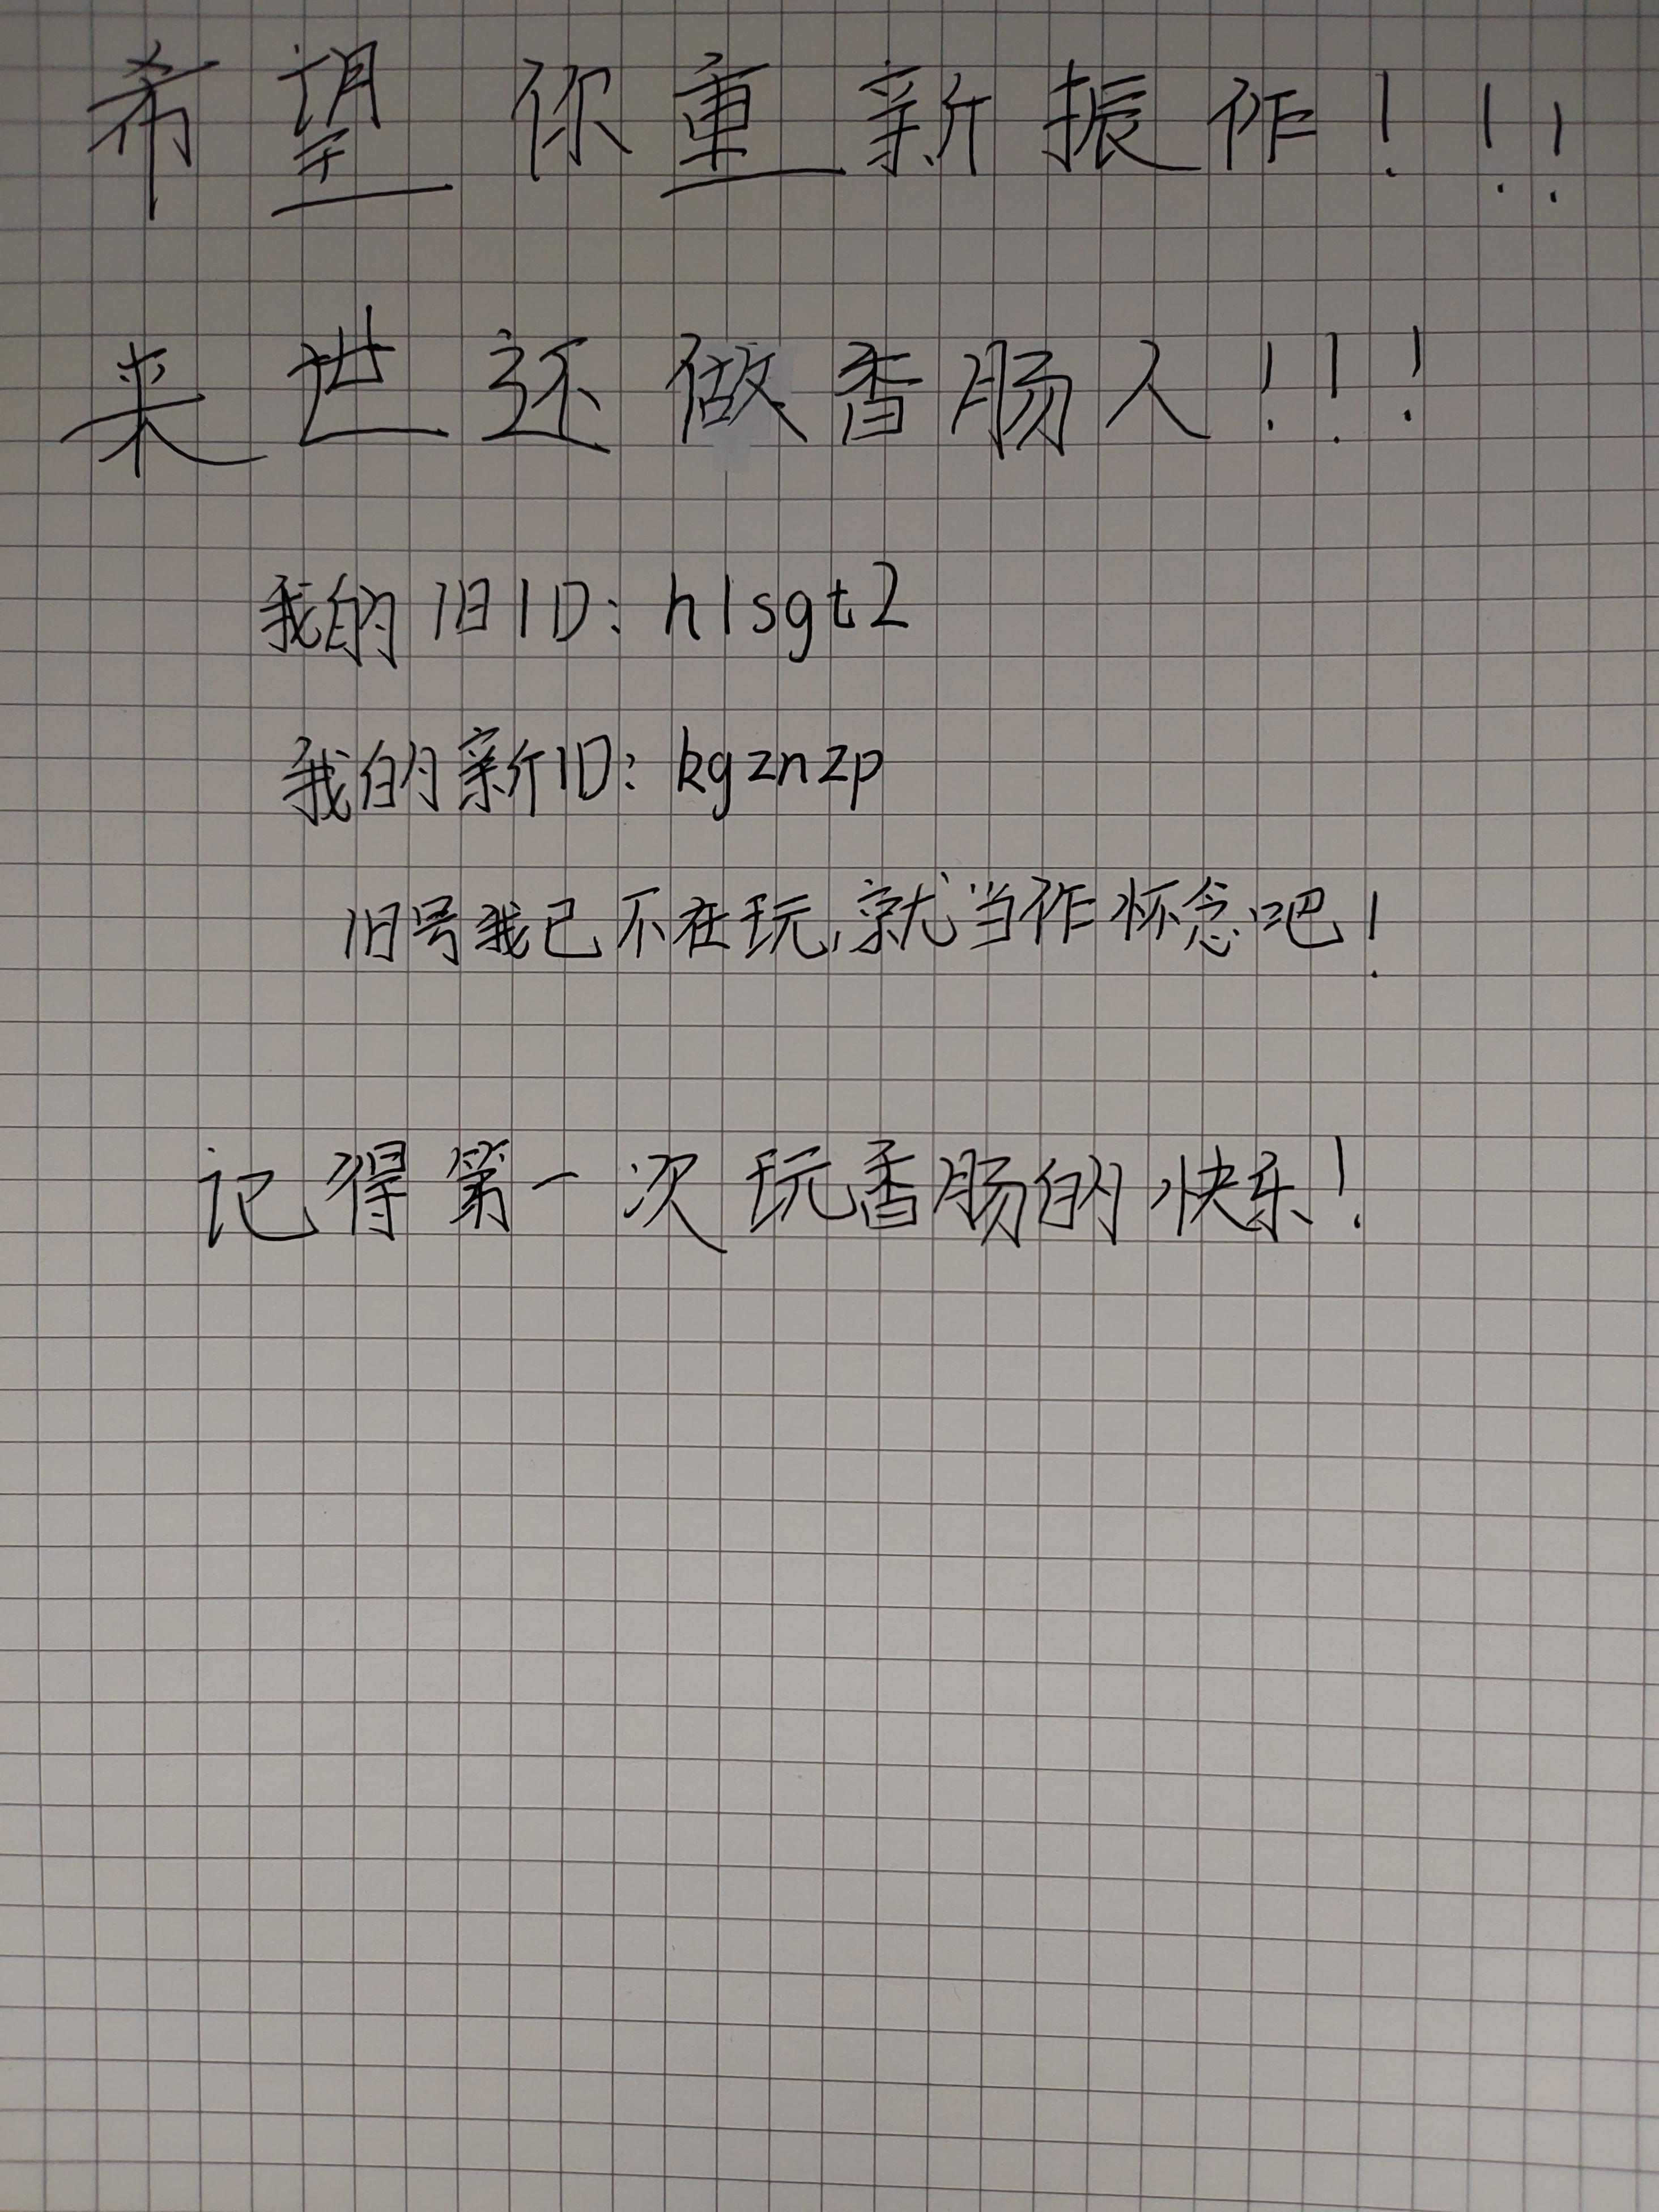 希望你重新振作！！！
来世还做香肠人！！！
我的旧ID：hlsgt2
我的新ID：kgznzp
旧号我已不在玩，就当作怀念吧！
记得第一次玩香肠的快乐！